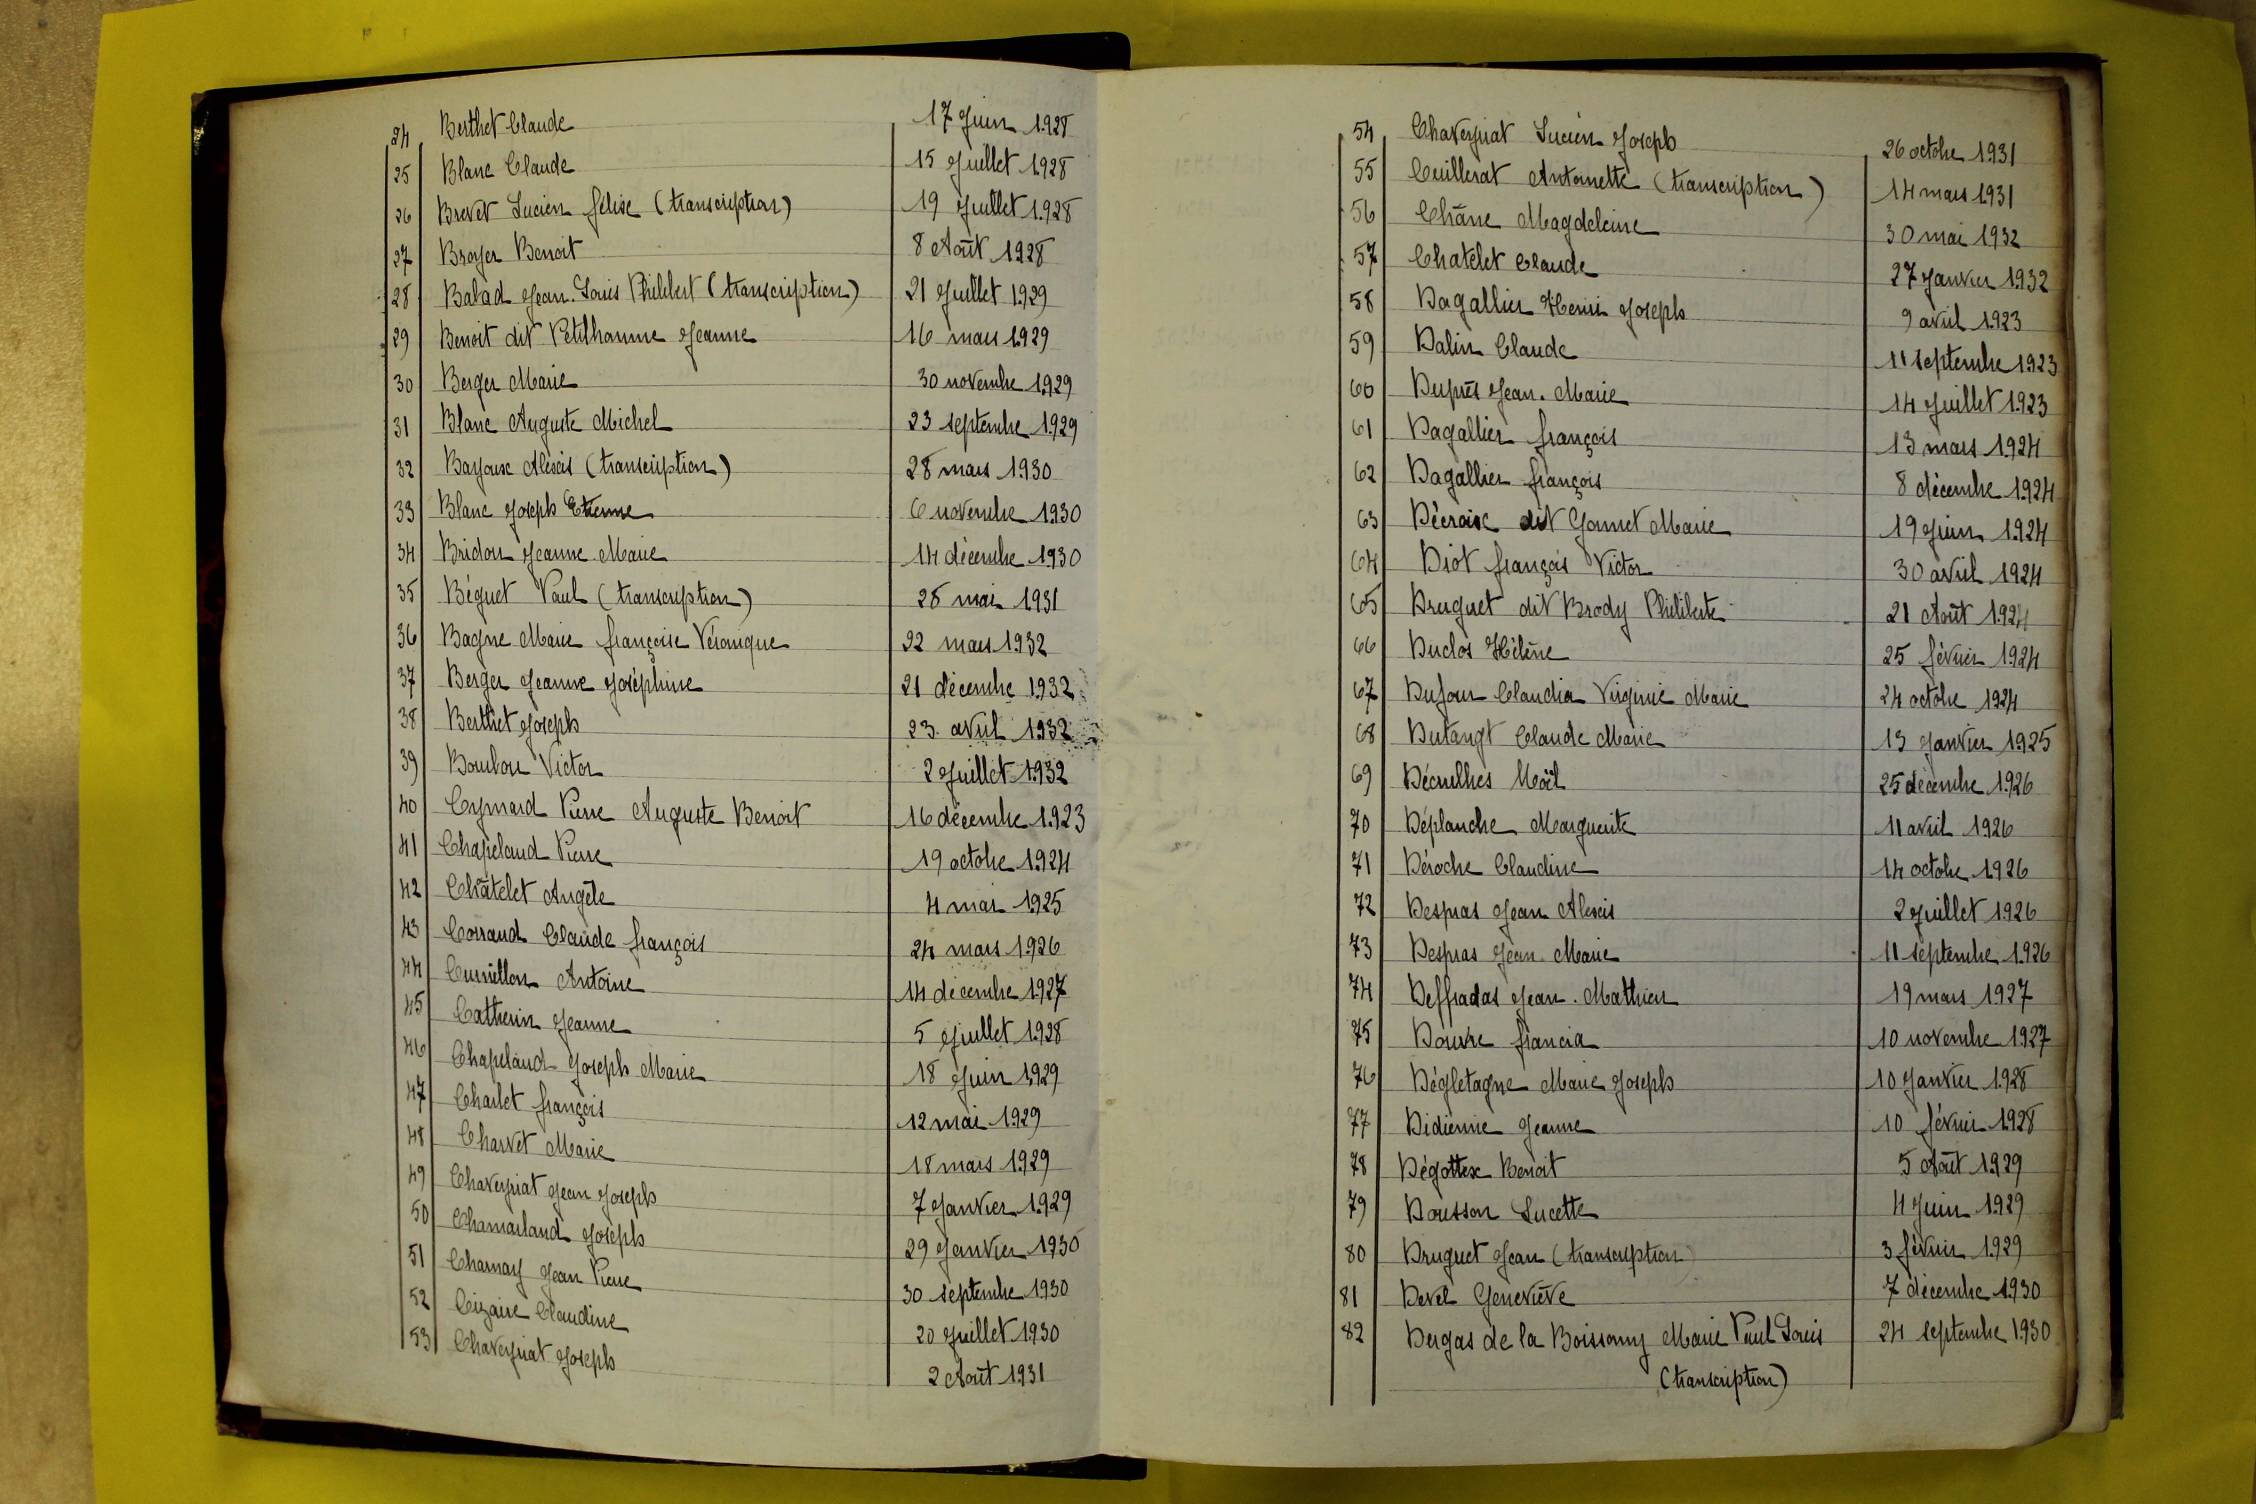 24 Berthet Claude 17 Juin 1928
25 Blanc Claude 15 Juillet 1928
26 Brevet Lucien Félix (transcription) 19 Juillet 1928
27 Broyer Benoit 8 Août 1928
28 Balad Jean-Louis Philibert (transcription) 21 Juillet 1929
29 Benoit dit Petithomme Jeanne 16 mars 1929
30 Berger Marie 30 novembre 1929
31 Blanc Auguste Michel 23 septembre 1929
32 Bayoux Alexis (transcription) 28 mars 1930
33 Blanc Joseph Etienne 6 novembre 1930
34 Bridon Jeanne Marie 14 décembre 1930
35 Béguet Paul (transcription) 28 mai 1931
36 Bagne Marie françoise Véronique 22 mars 1932
37 Berger Jeanne Joséphine 21 décembre 1932
38 Berthet Joseph 23 avril 1932
39 Boulon Victor 2 Juillet 1932
40 Eymard Pierre Auguste Benoit 16 décembre 1923
41 Chapeland Pierre 19 octobre 1924
42 Châtelet Angèle 4 mai 1925
43 Corraud Claude françois 24 mars 1926
44 Curvillon Antoine 14 décembre 1927
45 Catherin Jeanne 5 Juillet 1928
46 Chapeland Joseph Marie 18 Juin 1929
47 Charlet françois 12 mai 1929
48 Charvet Marie 18 mars 1929
49 Chaveyriat Jean Joseph 7 Janvier 1929
50 Chamarland Joseph 29 Janvier 1930
51 Charnay Jean Pierre 30 septembre 1930
52 Cizaire Claudine 20 Juillet 1930
53 Chaveyriat Joseph 2 Août 1931
54 Chaveyriat Lucien Joseph 26 octobre 1931
55 Cuillerat Antoinette (transcription) 14 mars 1931
56 Châne Magdeleine 30 mai 1932
57 Chatelet Claude 27 Janvier 1932
58 Dagallier Henri Joseph 9 avril 1923
59 Dalin Claude 11 septembre 1923
60 Duprés Jean-Marie 14 Juillet 1923
61 Dagallier françois 13 mars 1924
62 Dagallier françois 8 décembre 1924
63 Décroix dit Gonnet Marie 19 Juin 1924
64 Diot françois Victor 30 avril 1924
65 Druguet dit Brody Philiberte 21 Août 1924
66 Duclos Hélène 25 février 1924
67 Dufour Claudia Virginie Marie 24 octobre 1924
68 Dutangt Claude Marie 13 Janvier 1925
69 Décrulhes Noël 25 décembre 1926
70 Déplanche Marguerite 11 avril 1926
71 Déroche Claudine 14 octobre 1926
72 Despras Jean Alexis 2 Juillet 1926
73 Despras Jean-Marie 11 septembre 1926
74 Deffradas Jean-Mathieu 19 mars 1927
75 Douvre francia 10 novembre 1927
76 Dégletagne Marie Joseph 10 Janvier 1928
77 Didienne Jeanne 10 février 1928
78 Dégottex Benoit 5 Août 1929
79 Dousson Lucette 4 Juin 1929
80 Druguet Jean (transcription) 3 février 1929
81 Devel Geneviève 7 décembre 1930
82 Dergas de la Boissony Marie Paul Louis 24 septembre 1930
(transcription)